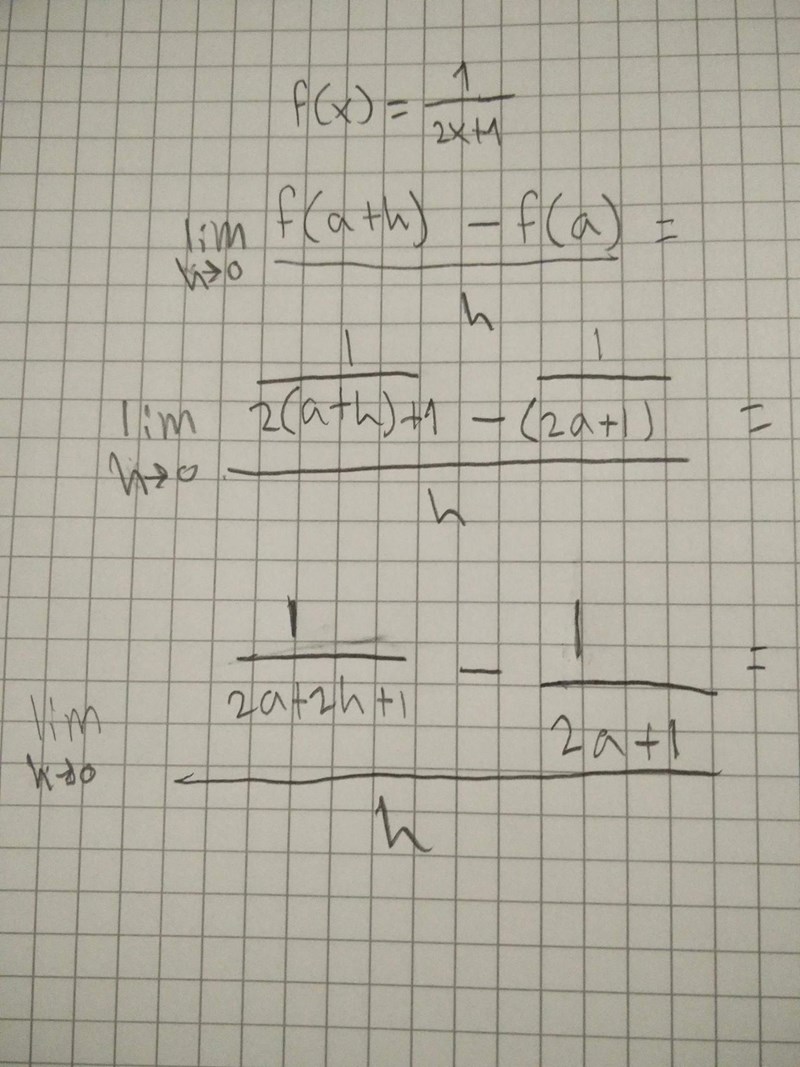 f(x) = 1/(2x+1)
lim h→0 (f(a+h) - f(a))/h =
lim h→0 (1/(2(a+h)+1) - 1/(2a+1))/h =
lim h→0 (1/(2a+2h+1) - 1/(2a+1))/h =